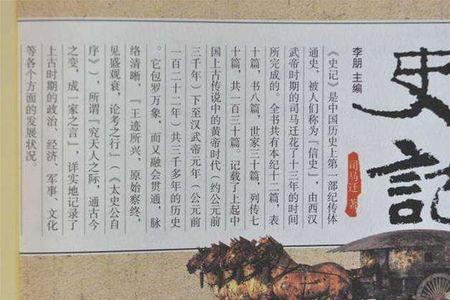 史記
司马迁 著
李朋 主编
《史记》是中国历史上第一部纪传体
通史，被人们称为「信史」，由西汉
武帝时期的司马迁花了十三年的时间
所完成的。全书共有本纪十二篇，表
十篇，书八篇，世家三十篇，列传七
十篇，共一百三十篇，记载了上起中
国上古传说中的黄帝时代（约公元前
三千年）下至汉武帝元年（公元前
一百二十二年，共三千多年的历史
。它包罗万象，而又融会贯通，脉
络清晰，「王迹所兴，原始察终，
见盛观衰，论考之行」（《太史公自
序》），所谓「究天人之际，通古今
之变，成一家之言」，详实地记录了
上古时期的政治、经济、军事、文化
等各个方面的发展状况。